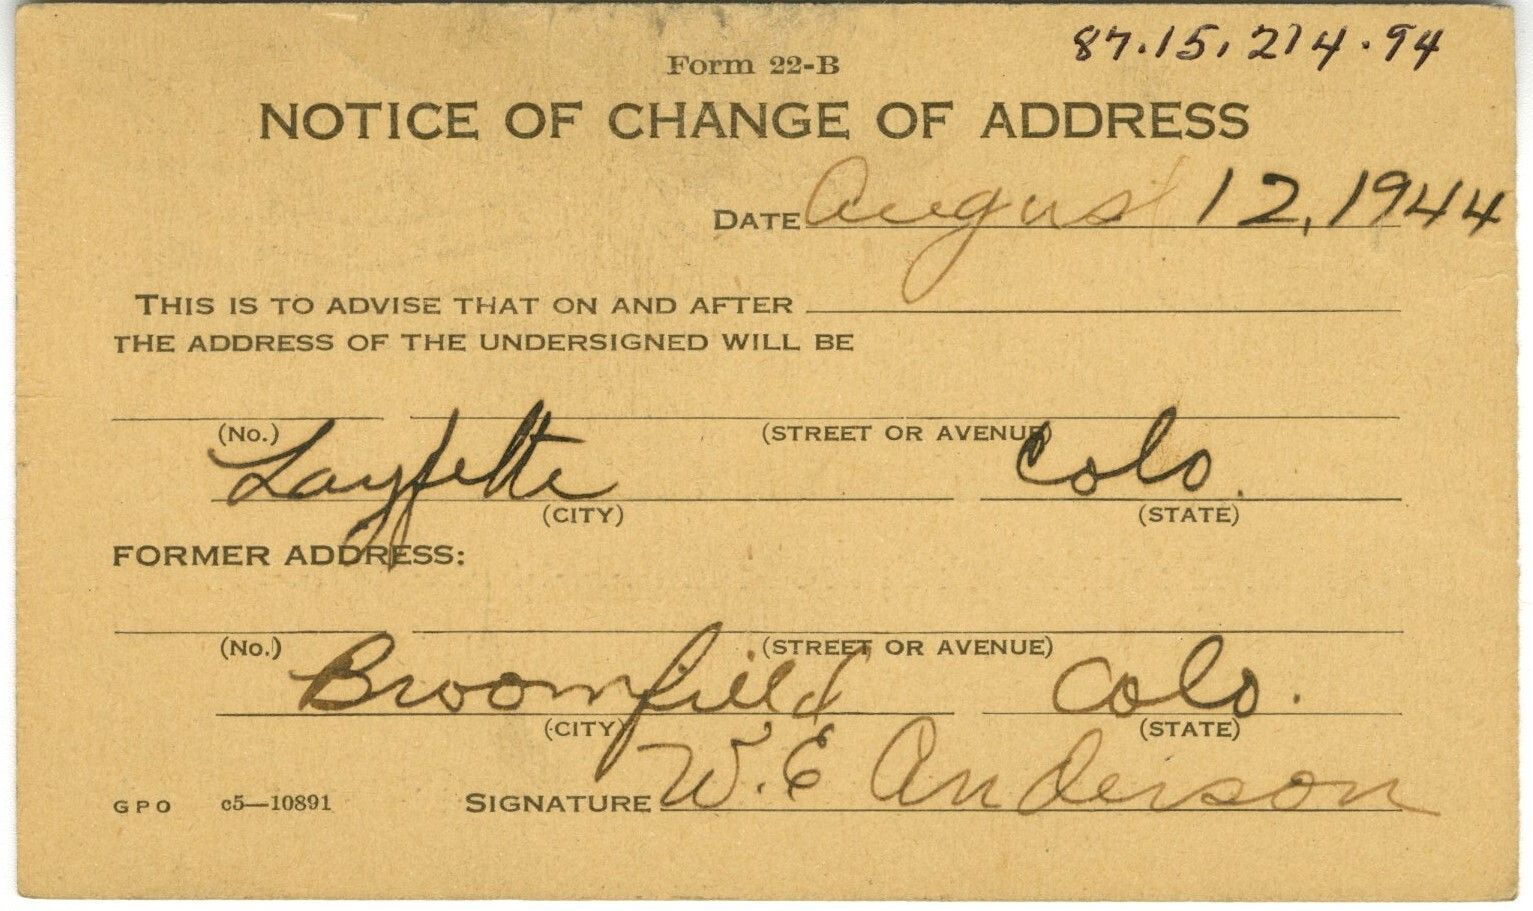 87.15.214.94
Form 22-B
NOTICE OF CHANGE OF ADDRESS
DATE August 12, 1944
THIS IS TO ADVISE THAT ON AND AFTER
THE ADDRESS OF THE UNDERSIGNED WILL BE
(No.) (STREET OR AVENUE)
Layfette Colo.
(CITY) (STATE)
FORMER ADDRESS:
(No.) (STREET OR AVENUE)
Broomfield Colo.
(CITY) (STATE)
GPO c5—10891 SIGNATURE W. E Anderson